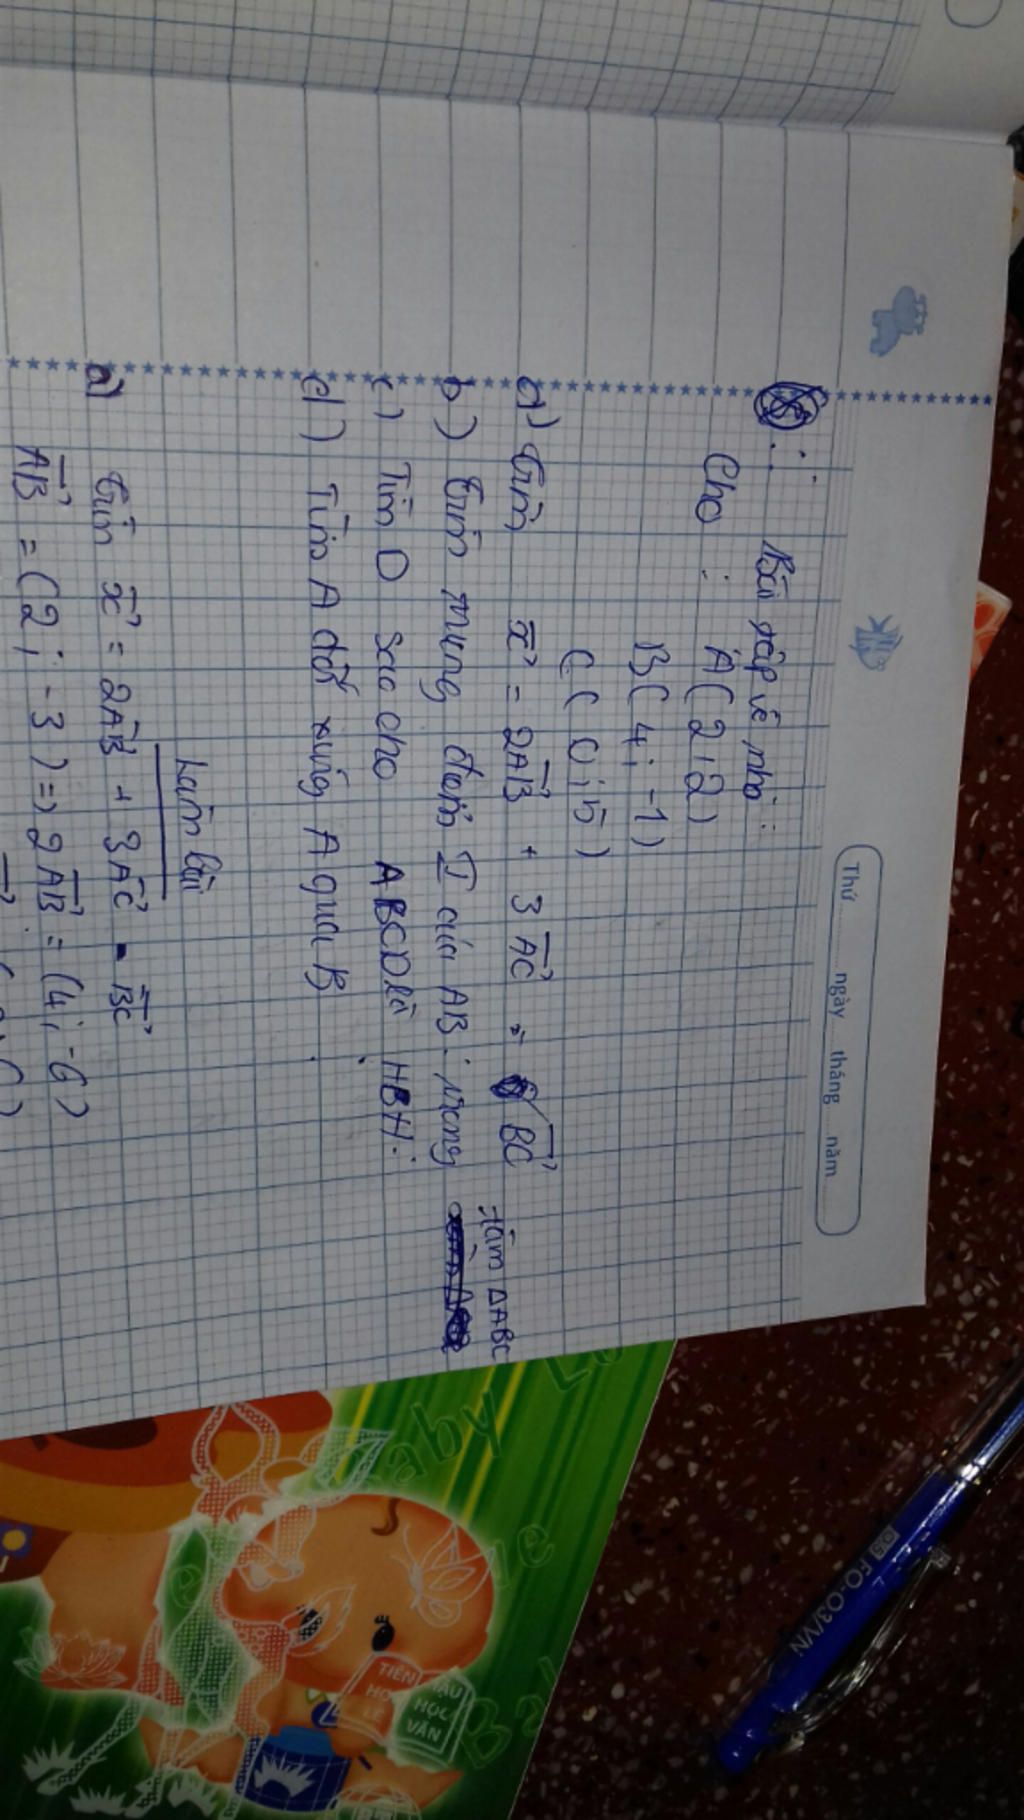 Thứ ngày tháng năm
Bài tập về nhà :
Cho : A(2;2)
B(4;-1)
C(0;5)
a) Tìm x = 2AB + 3AC - BC
b) Tìm trung điểm I của AB. trọng tâm ΔABC
c) Tìm D sao cho ABCD là HBH.
d) Tìm A đối xứng A qua B
Làm bài
a) Tìm x = 2AB + 3AC - BC
AB = (2; -3) => 2AB = (4; -6)
Baby Lo
TIÊN HỌC LỄ
HẬU HỌC VĂN
05 FO-03/VN